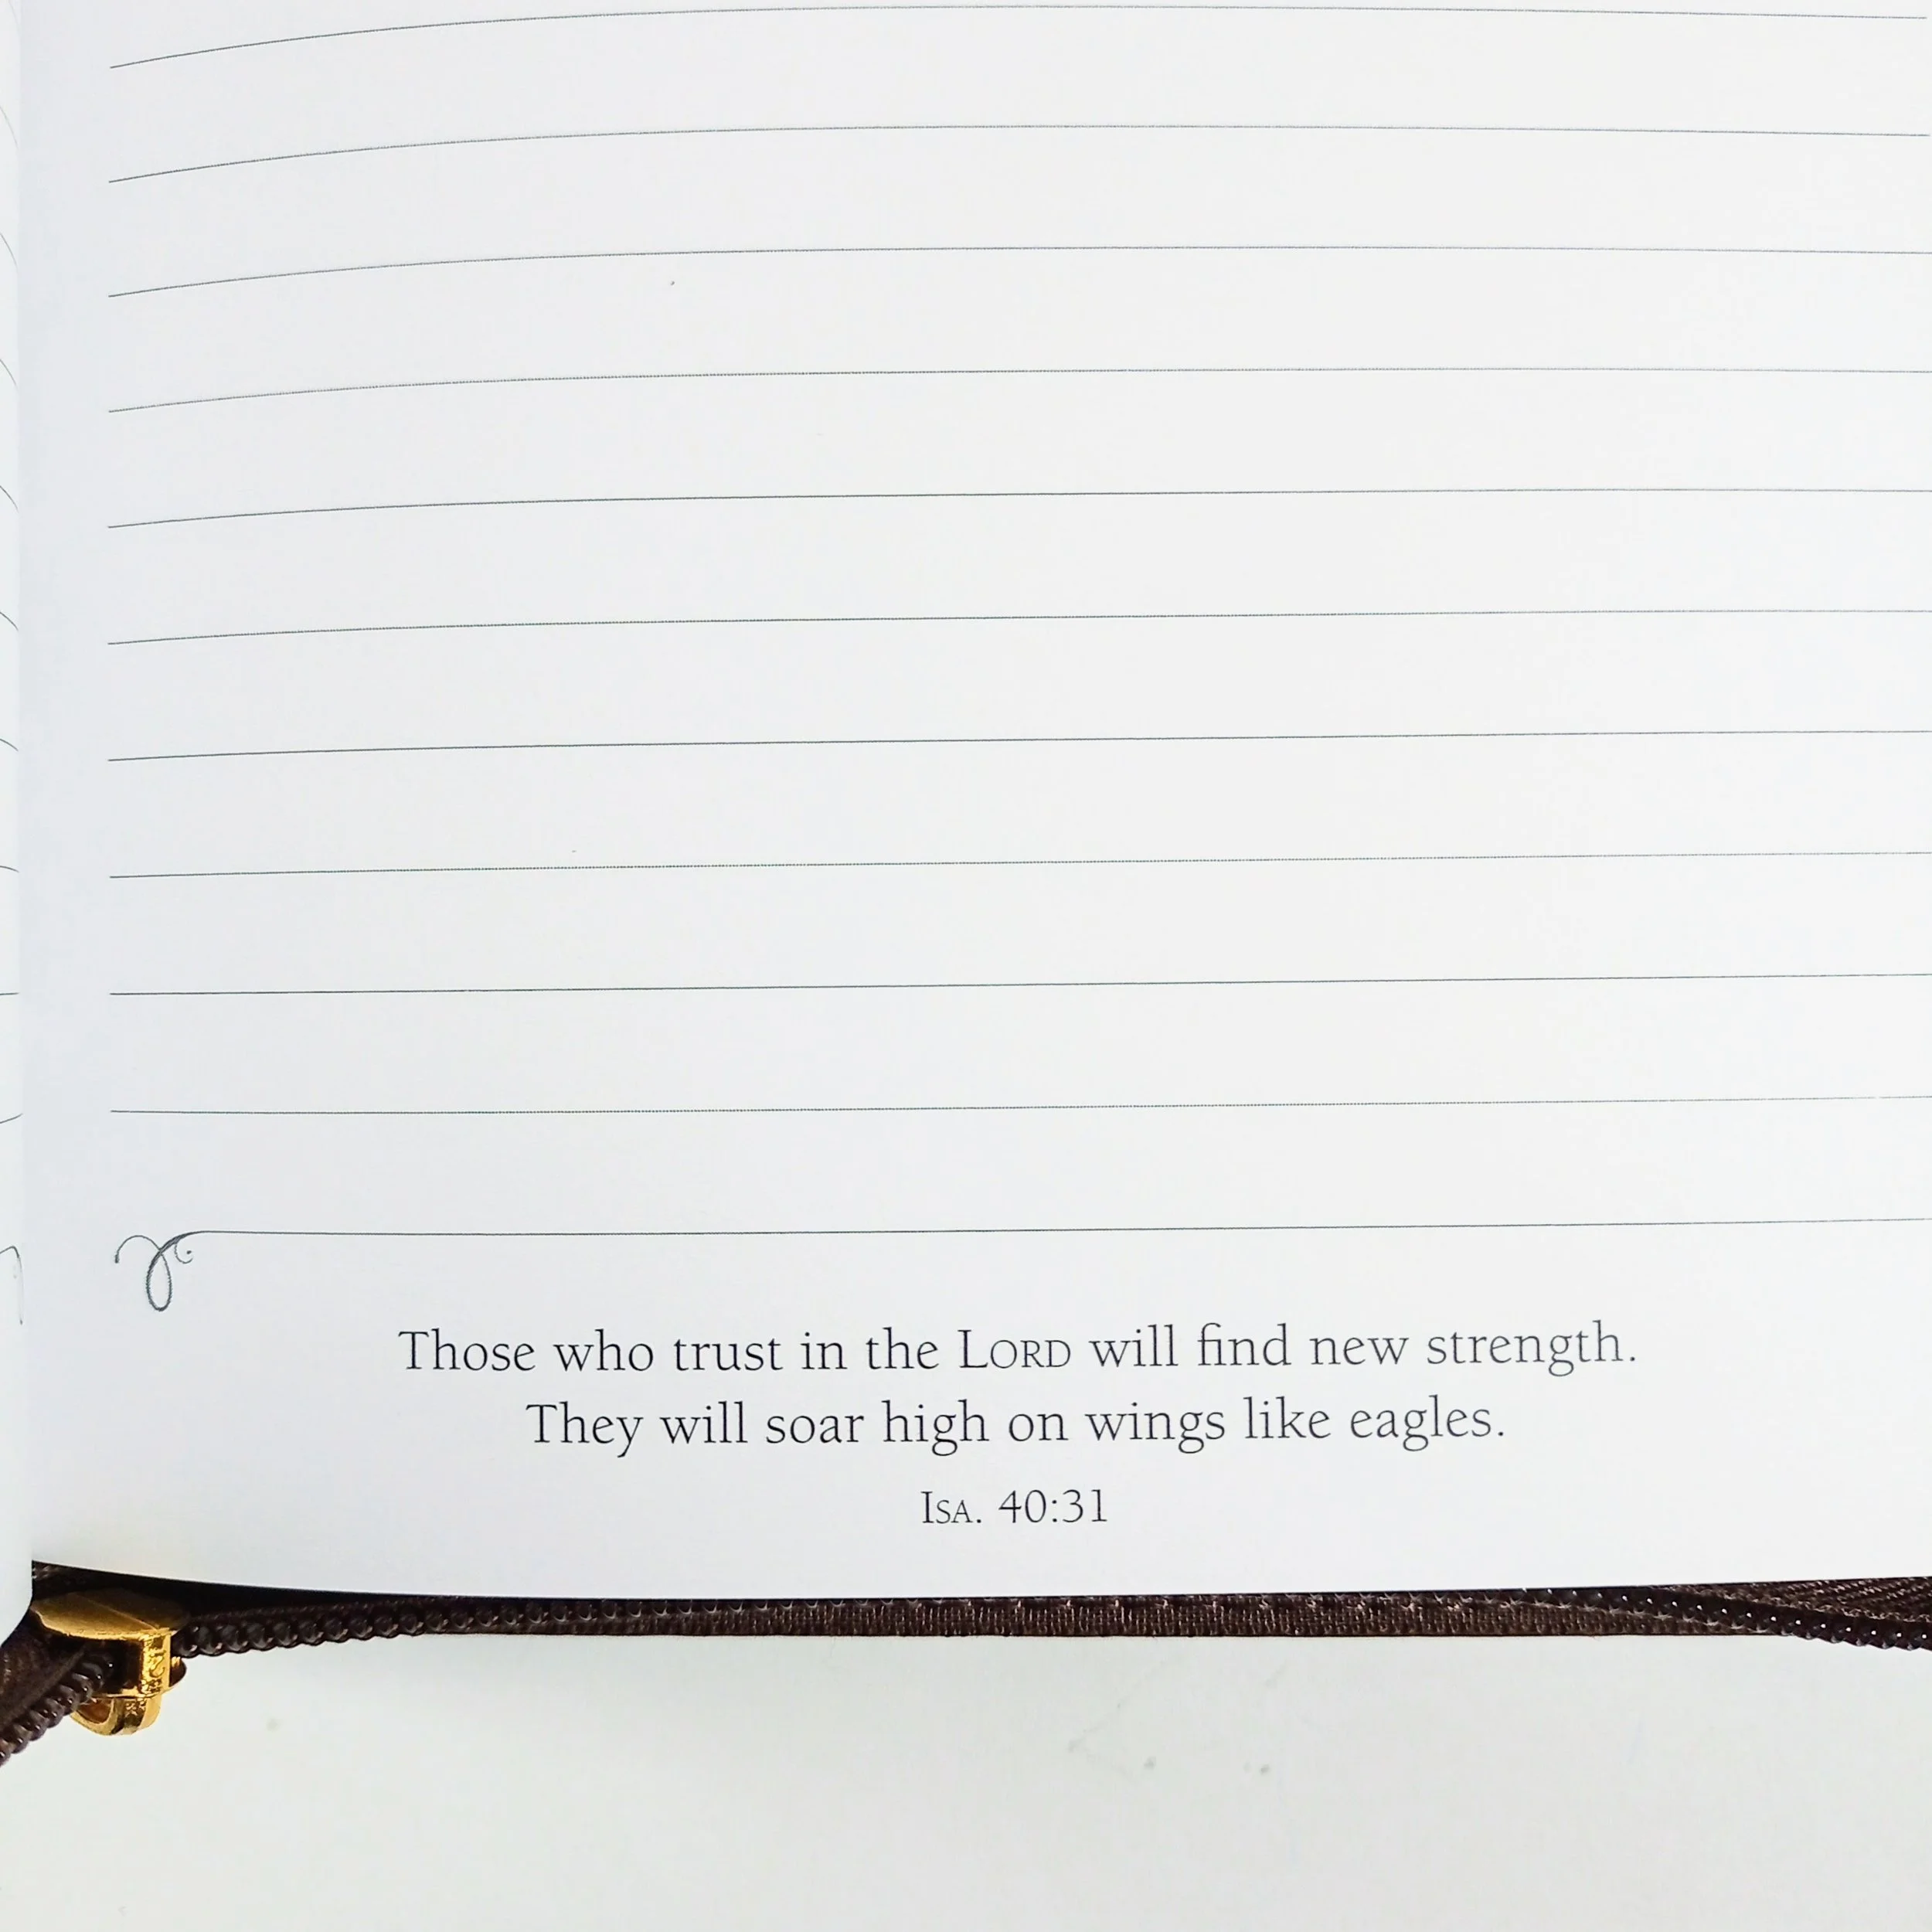 Those who trust in the LORD will find new strength.
They will soar high on wings like eagles.
ISA. 40:31